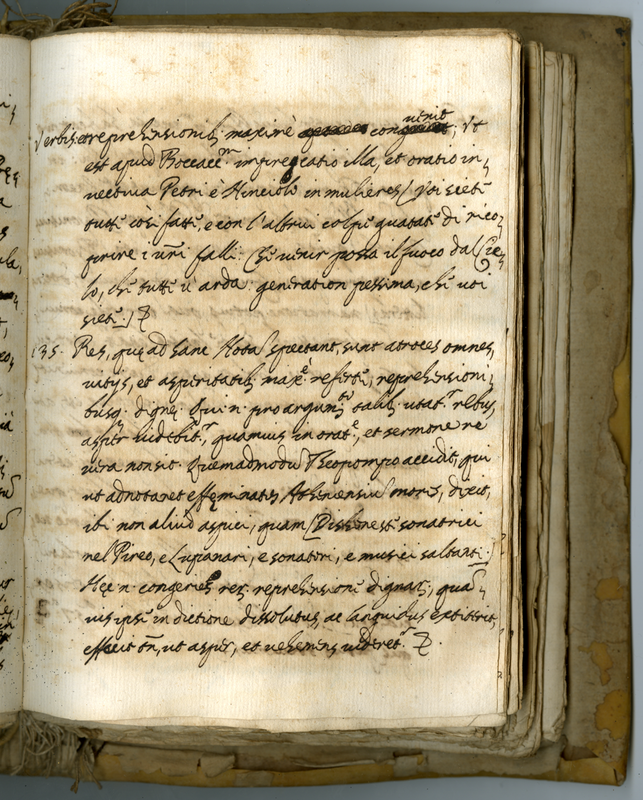 venit
Verbis et reprehensionib; maximè con; Vt
est apud Boccacc.m imprecatio illa, et oratio in,
uectiua Petri è Vinciolo in mulieres (Voi siete
tutti così fatti, e con l'altrui colpe guatate di rico,
prire i vrĩ falli. Che venir possa il fuoco dal Cie,
lo, che tutte u' arda: generation pessima, che voi
siete.)
135. Res, quę ad hanc Nota spectant, sunt atroces omnes,
uitijs, et asperitatib; max.e referti, reprehensioni,
busq. dignę. Qui n. pro argum.tis talib. utat.r rebus,
asper uidebit.r, quamuis in orat.e, et sermone re
uera non sit. Quemadmodũ Theopompo accidit, qui
ut adnotaret effęminatos Atheniensiũ mores, dixit,
ibi non aliud aspici, quam (Dishoneste sonatrici
nel Pireo, e Lupanari, e sonatori, e musici saltanti.)
Hęc n. congeries rer. reprehensione dignar., quã,
uis ipse in dictione dissolutus, ac languidus extiterit,
effecit tñ, ut asper, et uehemens uideret.r